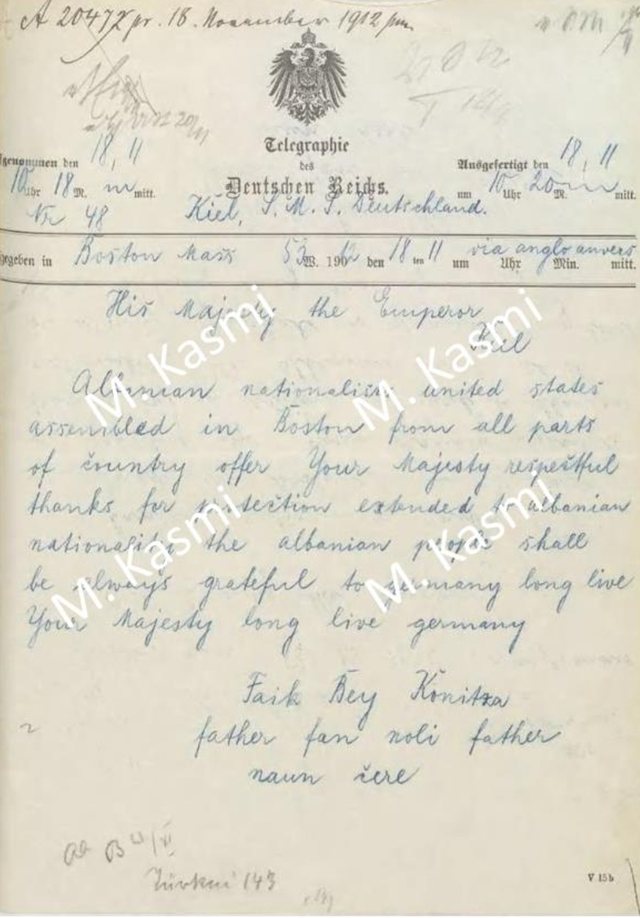 A 20472 pr. 18. November 1912 pm.
Telegraphie
des
Deutschen Reichs.
genommen den 18, 11
Ausgefertigt den 18, 11
10 Uhr 18 M. m mitt.
um 10 Uhr 20 M. m mitt.
Nr 48
Kiel, S. M. S. Deutschland.
egeben in Boston Mass 53 W. 1902 den 18 ten 11 um Uhr Min. mitt.
via anglo anvers
His Majesty the Emperor
Kiel
Albanian nationalists united states
assembled in Boston from all parts
of country offer Your Majesty respectful
thanks for protection extended to albanian
nationality the albanian people shall
be always grateful to germany long live
Your Majesty long live germany
Faik Bey Konitza
father fan noli father
naun cere
Türkei 143
V. 15 b
M. Kasmi
M. Kasmi
M. Kasmi
M. Kasmi